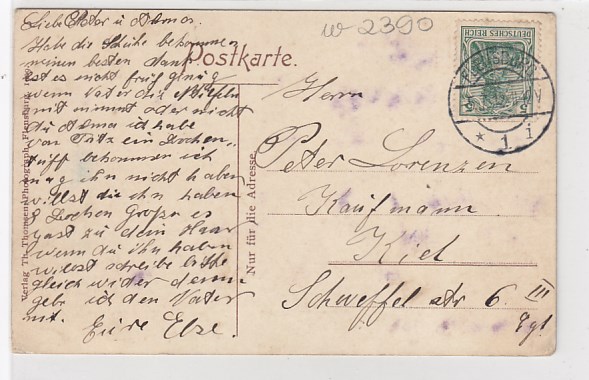 w 2390
Postkarte.
DEUTSCHES REICH
FLENSBURG
* 1 i
Liebe Peter u Alma.
Habe die Schuhe bekommen
meinen besten Dank
ist es nicht früh genug
wenn Vater die Stiefeln
mit nimmt oder nicht
du Alma ich habe
von Fritz ein Locken
bekommen ich
mag ihn nicht haben
willst du ihn haben
8 Locken Große es
past zu dein Haar
wenn du ihn haben
willst schreibe bitte
gleich wider denn
gebe ich den Vater
mit.
Eure Else.
Herrn
Peter Lorenzen
Kaufmann
Kiel
Scheffel str 6 III
Nur für die Adresse
Verlag Th. Thomsen, Photograph, Flensburg